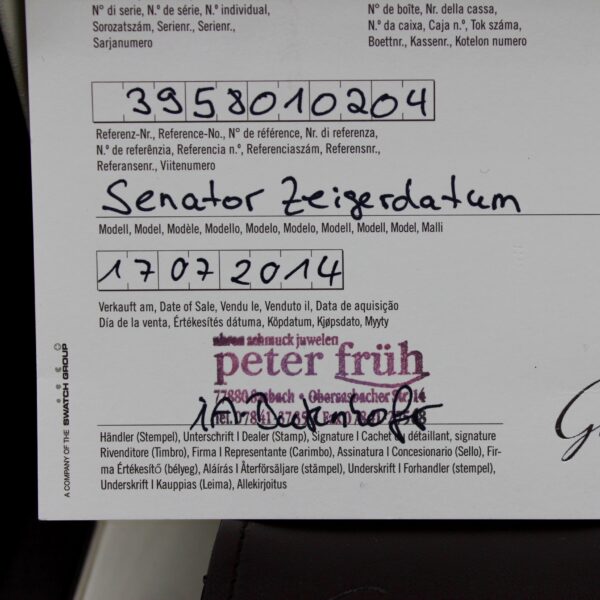 N° di serie, N.° de série, N.° individual,
Sorozatszám, Serienr., Serienr.,
Sarjanumero
N° de boîte, Nr. della cassa,
N.° da caixa, Caja n.°, Tok száma,
Boettnr., Kassenr., Kotelon numero
3958010204
Referenz-Nr., Reference-No., N° de référence, Nr. di referenza,
N.° de referênzia, Referencia n.°, Referenciaszám, Referensnr.,
Referansenr., Viitenumero
Senator Zeigerdatum
Modell, Model, Modèle, Modello, Modelo, Modelo, Modell, Modell, Model, Malli
17 07 2014
Verkauft am, Date of Sale, Vendu le, Venduto il, Data de aquisição
Día de la venta, Értékesítés dátuma, Köpdatum, Kjøpsdato, Myyty
uhren schmuck juwelen
peter früh
77880 Sasbach • Obersasbacher Str. 14
Händler (Stempel), Unterschrift I Dealer (Stamp), Signature I Cachet du détaillant, signature
Rivenditore (Timbro), Firma I Representante (Carimbo), Assinatura I Concesionario (Sello), Fir-
ma Értékesítő (bélyeg), Aláírás I Återförsäljare (stämpel), Underskrift I Forhandler (stempel),
Underskrift I Kauppias (Leima), Allekirjoitus
A COMPANY OF THE SWATCH GROUP